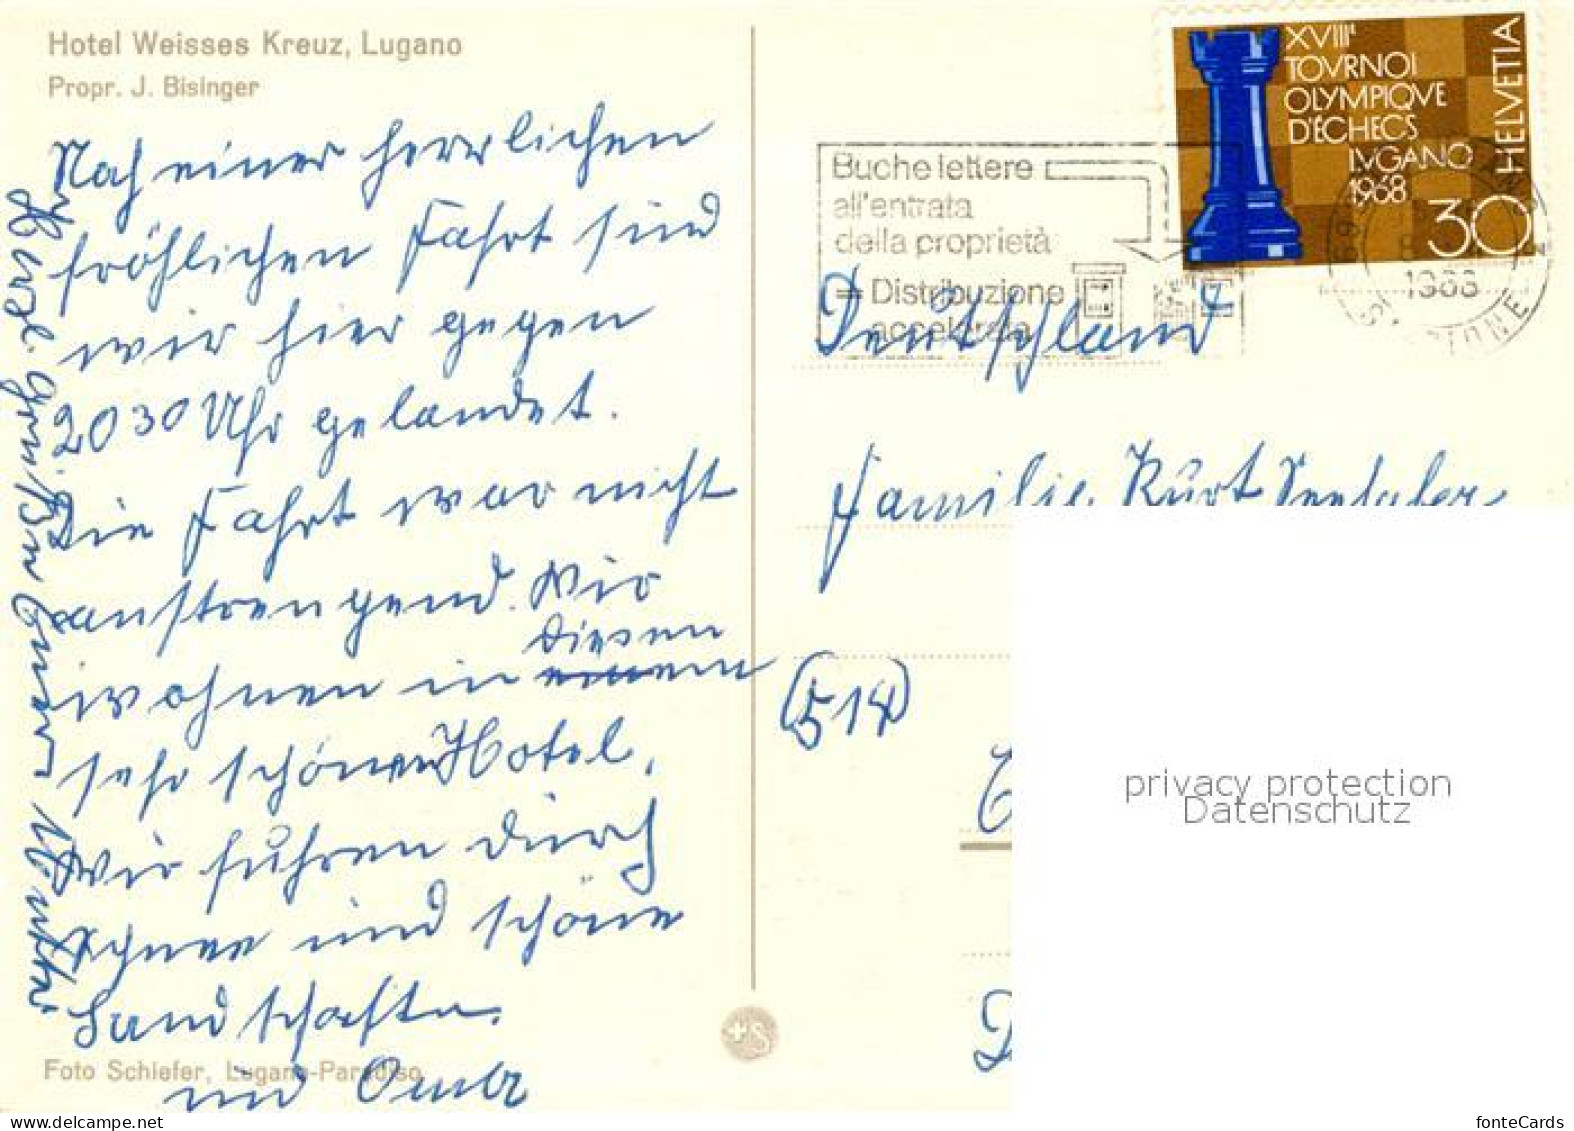 Hotel Weisses Kreuz, Lugano
Propr. J. Bisinger
Nach einer herrlichen
fröhlichen Fahrt sind
wir hier gegen
20 30 Uhr gelandet.
Die Fahrt war nicht
anstrengend. Wir
wohnen in diesen
sehr schönen Hotel,
Wir fuhren durch
Schnee und schöne
Landschaften.
Herzl. Grüßen Euere
und
Foto Schiefer, Lugano-Paradiso
XVIIIe
TOVRNOI
OLYMPIQVE
D'ÉCHECS
LVGANO
1968
HELVETIA
30
Buche lettere
all'entrata
della proprietà
= Distribuzione
accelerata
1968
Deutschland
Familie Kurt
(514)
+S
privacy protection
Datenschutz
www.delcampe.net
fonteCards